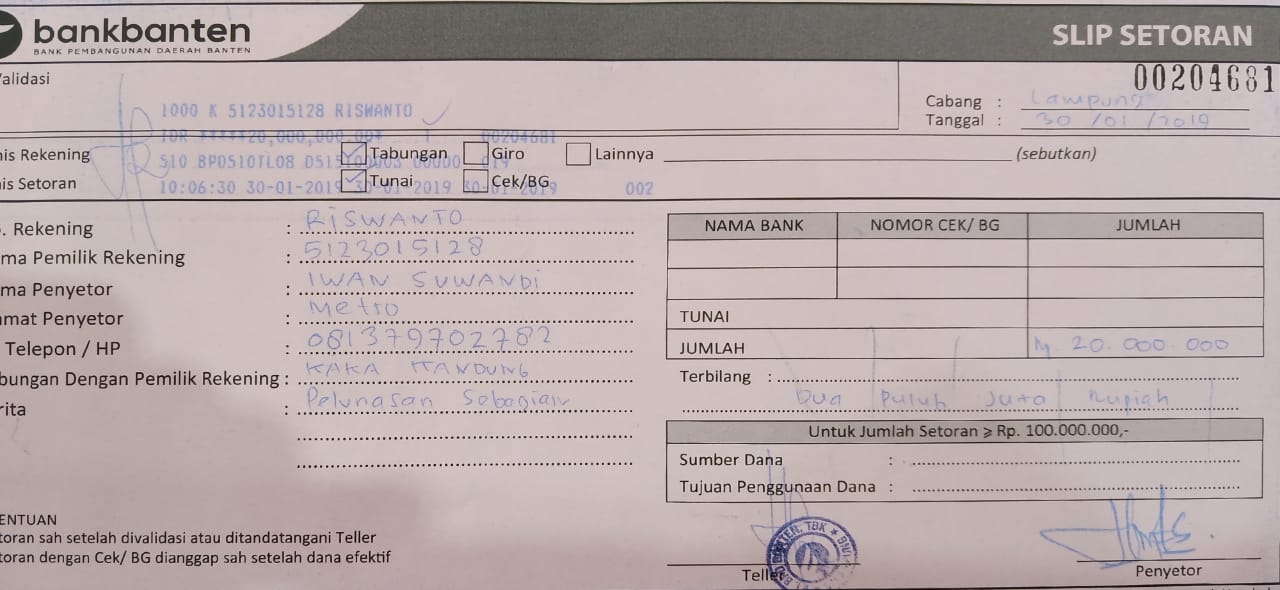 bankbanten
BANK PEMBANGUNAN DAERAH BANTEN
SLIP SETORAN
00204681
alidasi
1000 K 5123015128 RISWANTO
Cabang : Lampung
Tanggal : 30 / 01 / 2019
IDR *****20,000,000.00* T 00204681
nis Rekening Tabungan Giro Lainnya (sebutkan)
510 BPD510TL08
nis Setoran Tunai Cek/BG
10:06:30 30-01-2019 30-01-2019 30-01-2019 002
. Rekening : RISWANTO
ma Pemilik Rekening : 5123015128
ma Penyetor : IWAN SUWANDI
mat Penyetor : Metro
Telepon / HP : 081379702782
bungan Dengan Pemilik Rekening : KAKA KANDUNG
rita : Pelunasan Sebagian
NAMA BANK NOMOR CEK/ BG JUMLAH
TUNAI
JUMLAH 20.000.000
Terbilang :
Dua Puluh Juta Rupiah
Untuk Jumlah Setoran ⩾ Rp. 100.000.000,-
Sumber Dana :
Tujuan Penggunaan Dana :
ENTUAN
toran sah setelah divalidasi atau ditandatangani Teller
toran dengan Cek/ BG dianggap sah setelah dana efektif
BANTEN, TBK
Teller
Penyetor